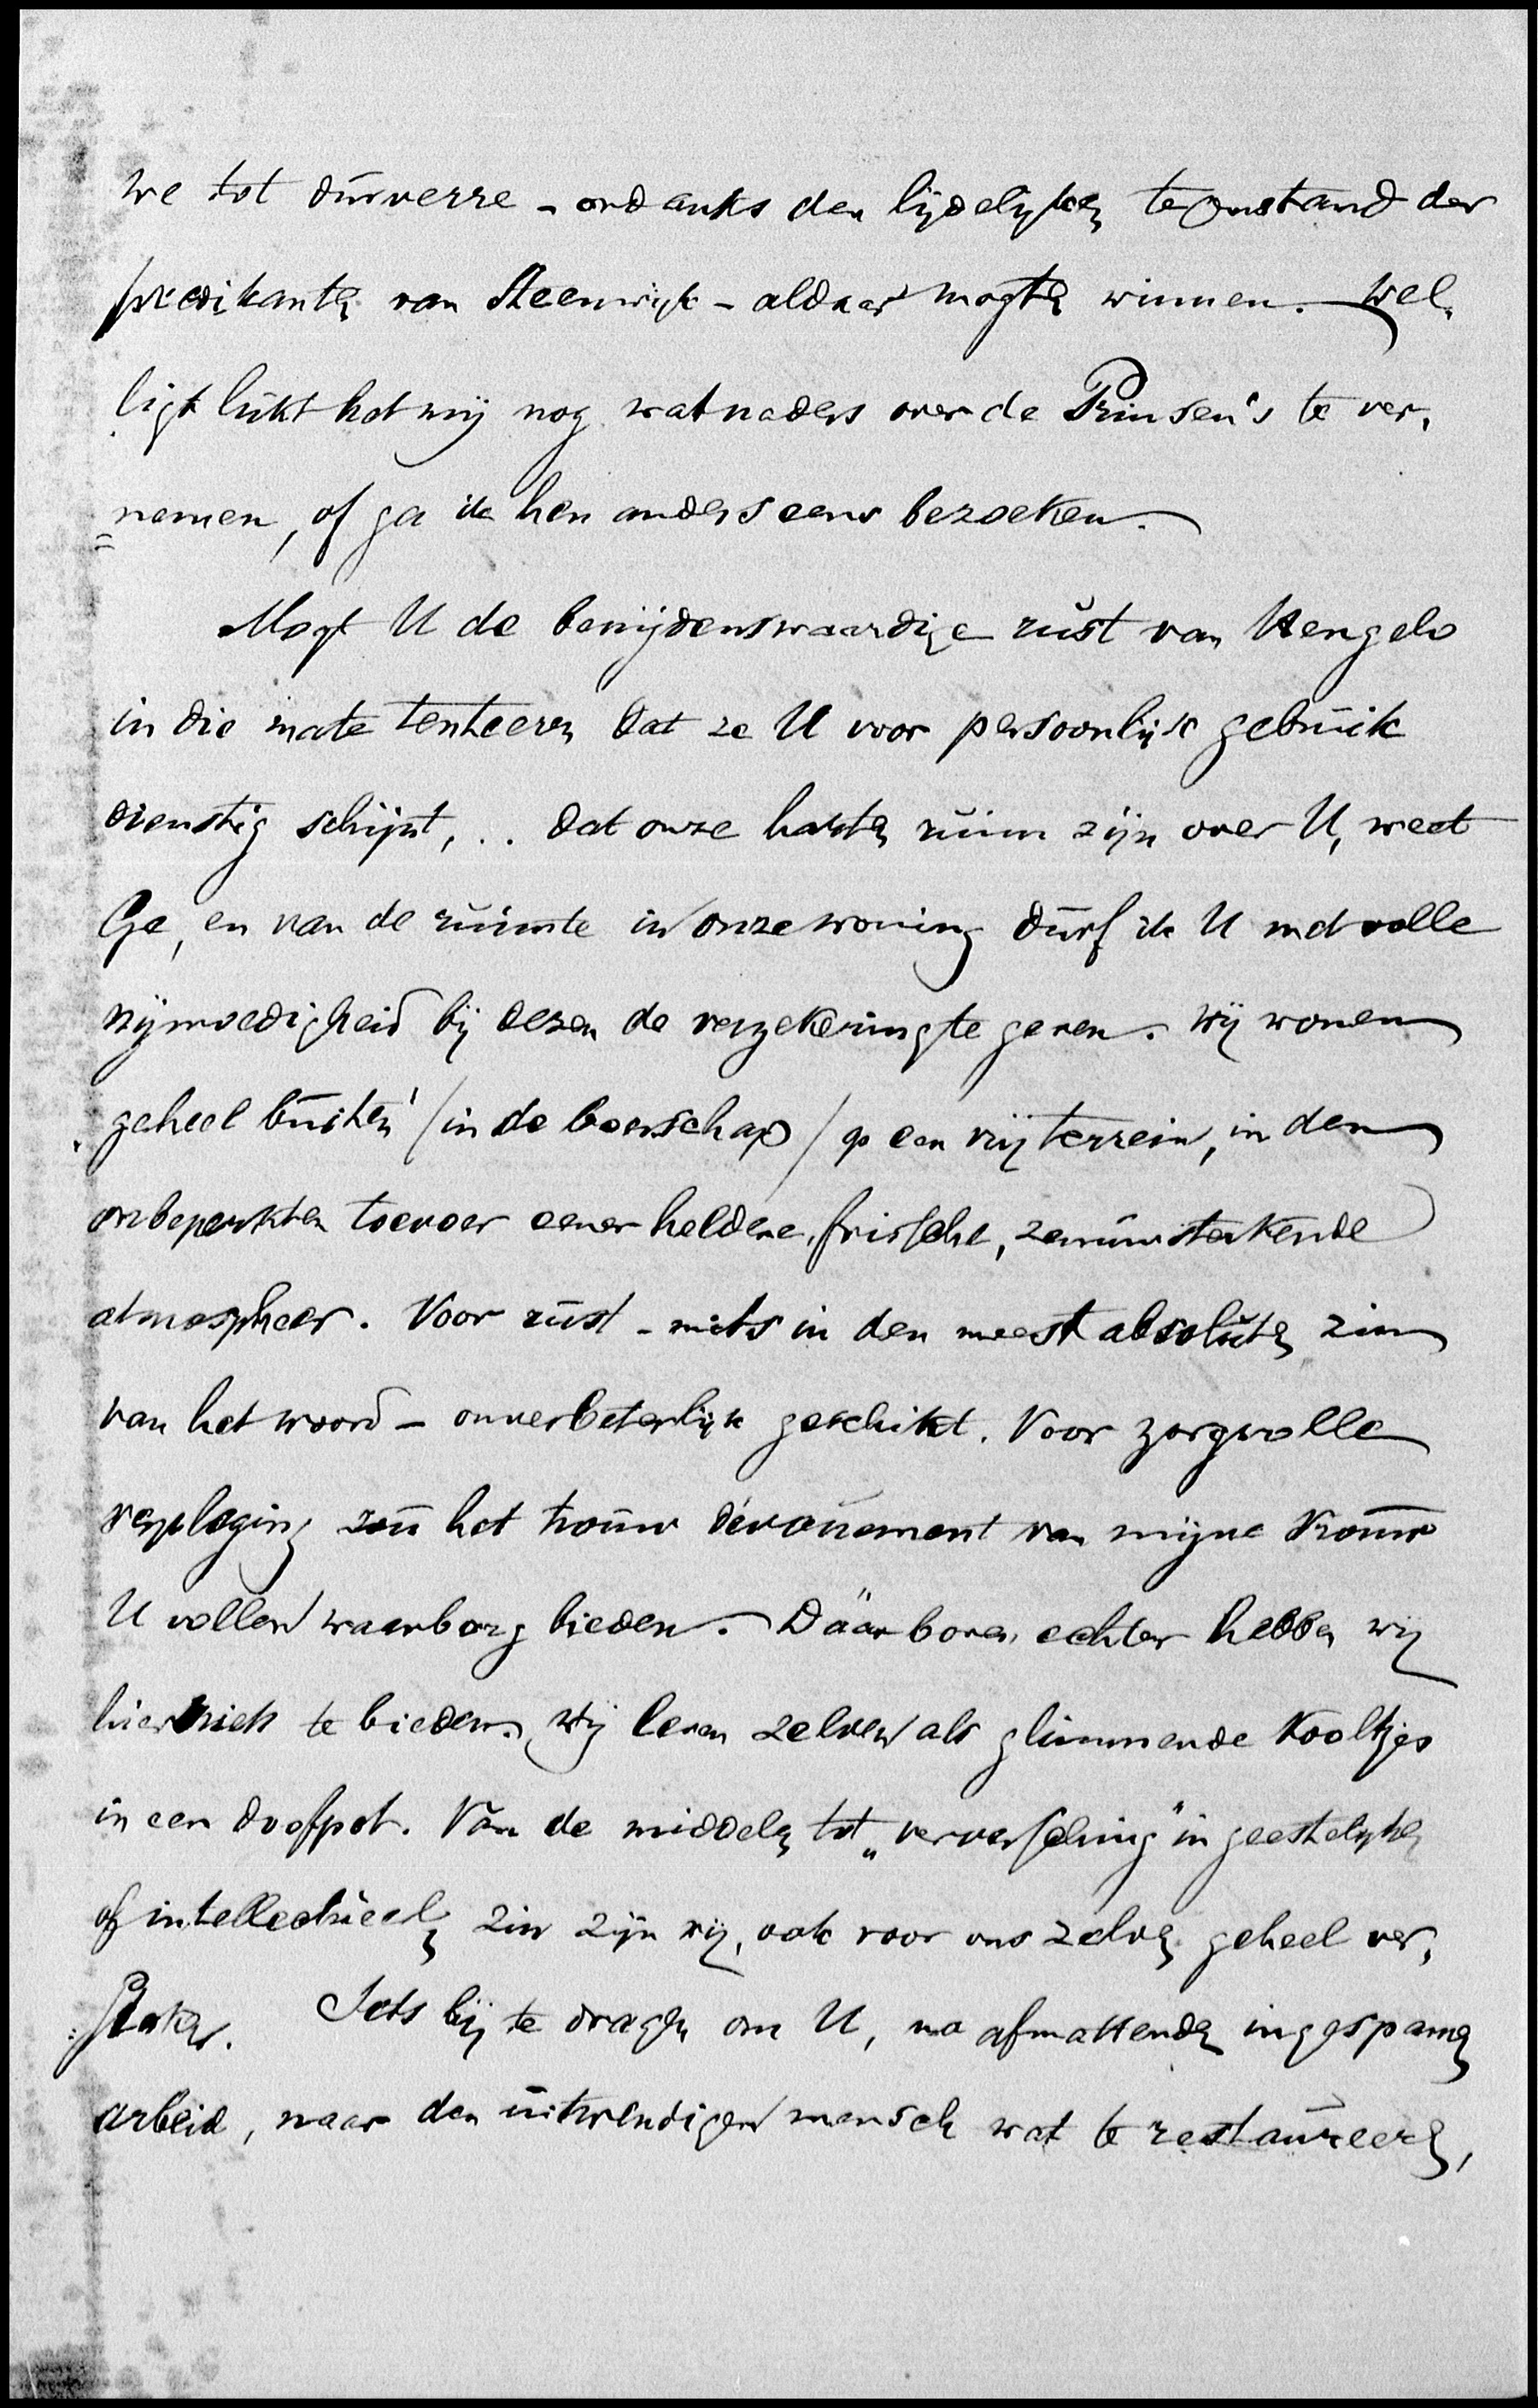 we tot dusverre – ondanks den lijdelyken tegenstand der
predikanten van Steenwijk – aldaar mogten winnen. Wel-
ligt lukt het mij nog wat naders over de Prinsen's te ver-
=nemen, of ga ik hen anders eens bezoeken.
Mogt U de benijdenswaardige rust van Hengelo
in die mate tenteeren dat ze U voor persoonlijk gebruik
dienstig schijnt, .. dat onze harten ruim zijn over U, weet
Ge, en van de ruimte in onze woning durf ik U met volle
vrijmoedigheid bij dezen de verzekering te geven. Wij wonen
„geheel buiten' /in de boerschap/ op een vrij terrein, in den
onbeperkten toevoer eener heldere, frissche, zenuwsterkende
atmospheer. Voor rust – mits in den meest absoluten zin
van het woord – onverbeterlijk geschikt. Voor zorgvolle
verpleging zou het trouw dévouement van mijne Vrouw
U vollen waarborg bieden. Dáárboven echter hebben wij
hier niets te bieden. Wij leven zelven als glimmende kooltjes
in een doofpot. Van de middelen tot „verversching" in geestelyken
of intellectueelen zin zijn wij, ook voor ons zelven geheel ver-
:stoken. Iets bij te dragen om U, na afmattenden ingespannen
arbeid, naar den uitwendigen mensch wat te restaureeren,